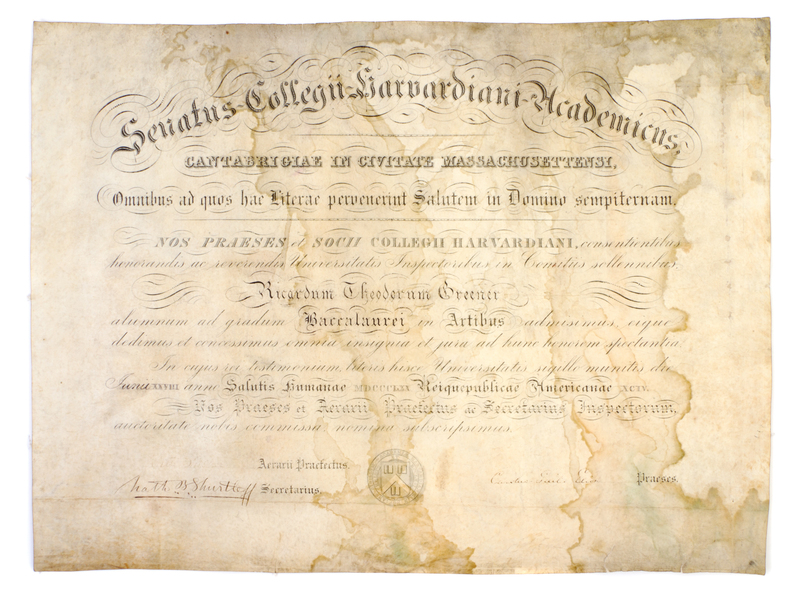 Senatus Collegii Harvardiani Academicus,
CANTABRIGIAE IN CIVITATE MASSACHUSETTENSI,
Omnibus ad quos hae Literae pervenerint Salutem in Domino sempiternam.
NOS PRAESES et SOCII COLLEGII HARVARDIANI, consentientibus
honorandis ac reverendis Universitatis Inspectoribus in Comitiis sollennibus,
Ricardum Theodorum Greener
alumnum ad gradum Baccalaurei in Artibus admisimus, eique
dedimus et concessimus omnia insignia et jura ad hunc honorem spectantia.
In cujus rei testimonium, literis hisce Universitatis sigillo munitis die
Junii XXVIII anno Salutis Humanae MDCCCLXX Reique publicae Americanae XCIV.
Nos Praeses et Aerarii Praefectus ac Secretarius Inspectorum,
auctoritate nobis commissa nomina subscripsimus.
Aerarii Praefectus.
Nath. B. Shurtleff Secretarius.
Praeses.